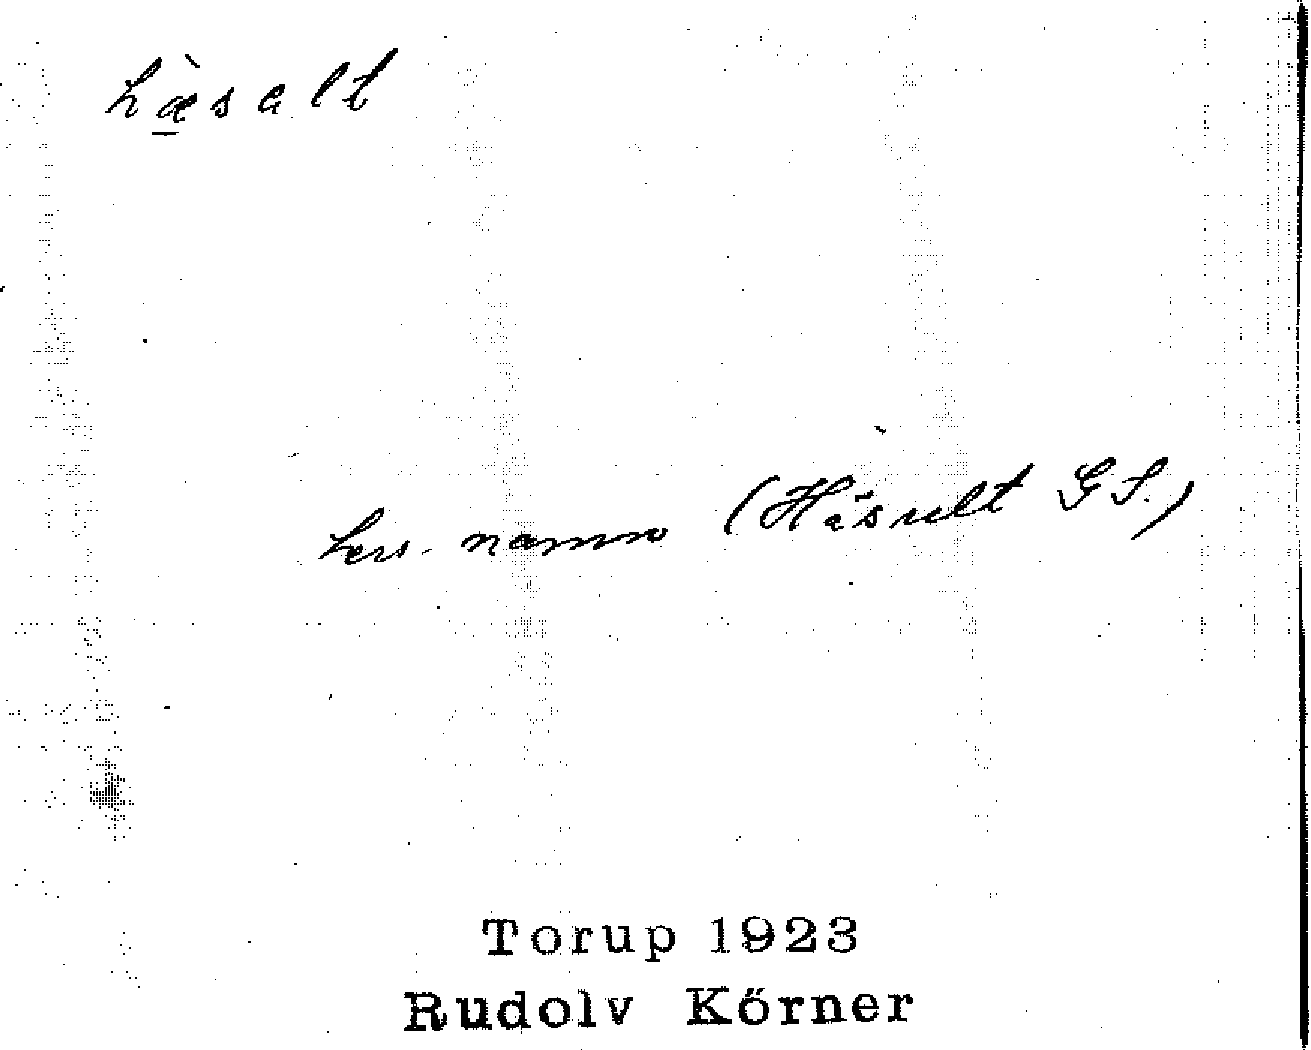 hæ̀salt
hers. namn (Häsult G.S.)
Torup 1923
Rudolv Körner